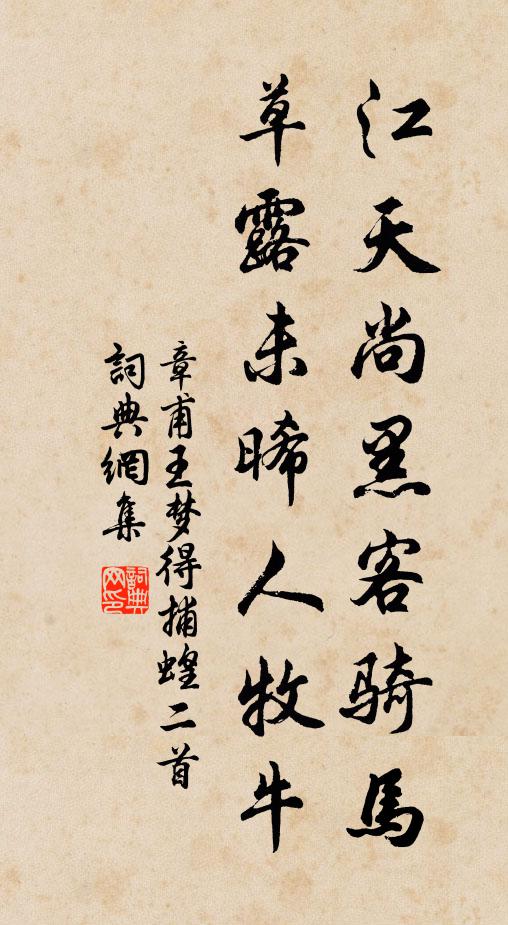 江天尚黑客騎馬
草露未晞人牧牛
章甫王梦得捕蝗二首
詞典網集
詞典网印